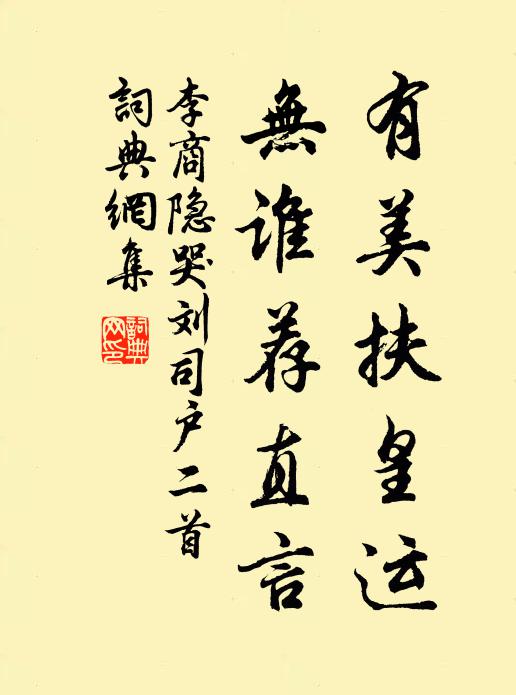 有美扶皇运
無谁荐直言
李商隐哭刘司户二首
詞典網集
詞典
网印